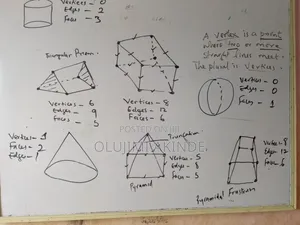 Vertices - 0
Edges - 2
Faces - 3
A vertex is a point
where two or more
straight lines meet.
The plural is vertices.
Triangular Prism
Vertices - 6
Edges - 9
Faces - 5
Vertices - 8
Edges - 12
Faces - 6
Vertices - 0
Edges - 0
Faces - 1
POSTED ON JIJI
OLUJINMI AKINDE
Vertices - 1
Faces - 2
Edges - 1
Vertices - 5
Faces - 5
Pyramid
Vertices - 8
Edges - 12
Faces - 6
Pyramidal Frustum